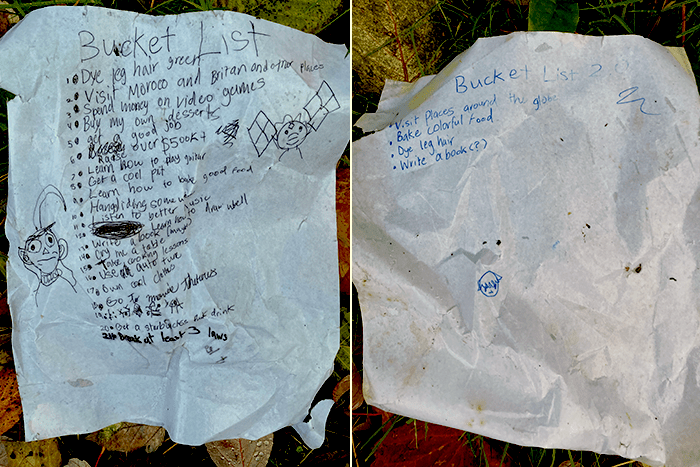 Bucket List
1. Dye leg hair green
2. Visit Moroco and Britan and other places
3. Spend money on video games
4. Buy my own desserts
5. get a good job
6. Raise over $500K+
7. Learn how to play guitar
8. Get a cool pet
9. Learn how to bake good food
10. Hangliding some
11. Listen to better music
12. Learn how to draw well
13. Write a book
14. Cry me a table
15. Take cooking lessons
16. Use auto tune
17. Own cool clothes
18. Go to movie
20. Get a drink
21. Break at least 3 laws
Bucket List 2
• Visit Places around the globe
• Bake colorful food
• Dye leg hair
• Write a book(?)